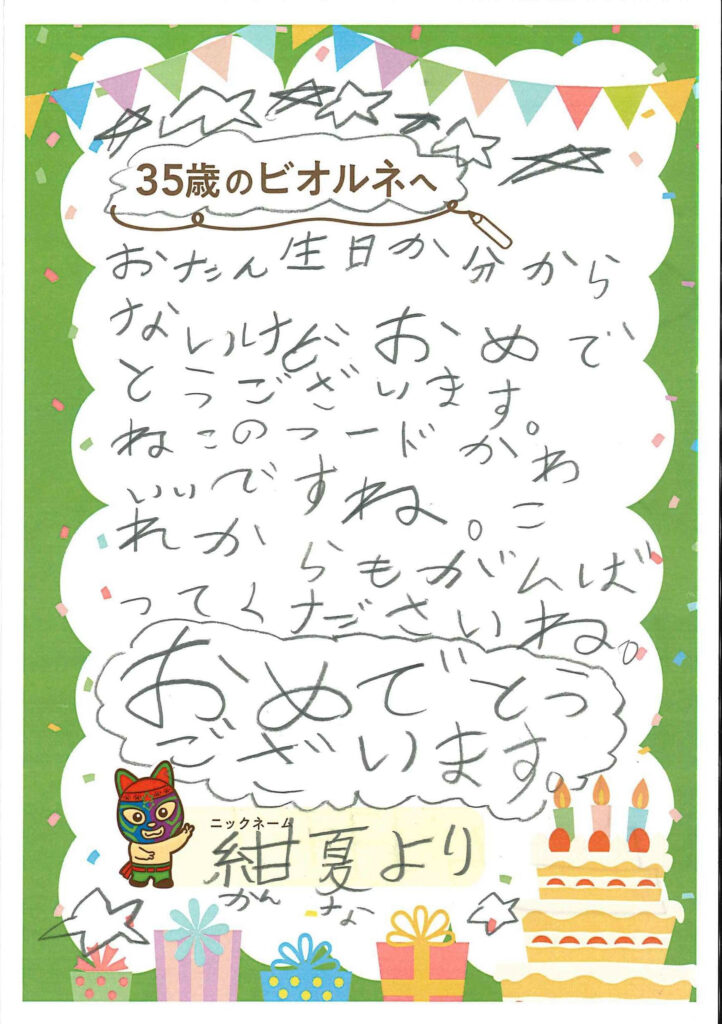 35歳のビオルネへ
おたん生日か分から
ないけど おめで
とうございます。
ねこのフードかわ
いいですね。こ
れからもがんば
ってくださいね。
おめでとう
ございます。
ニックネーム
紺夏より
かんな